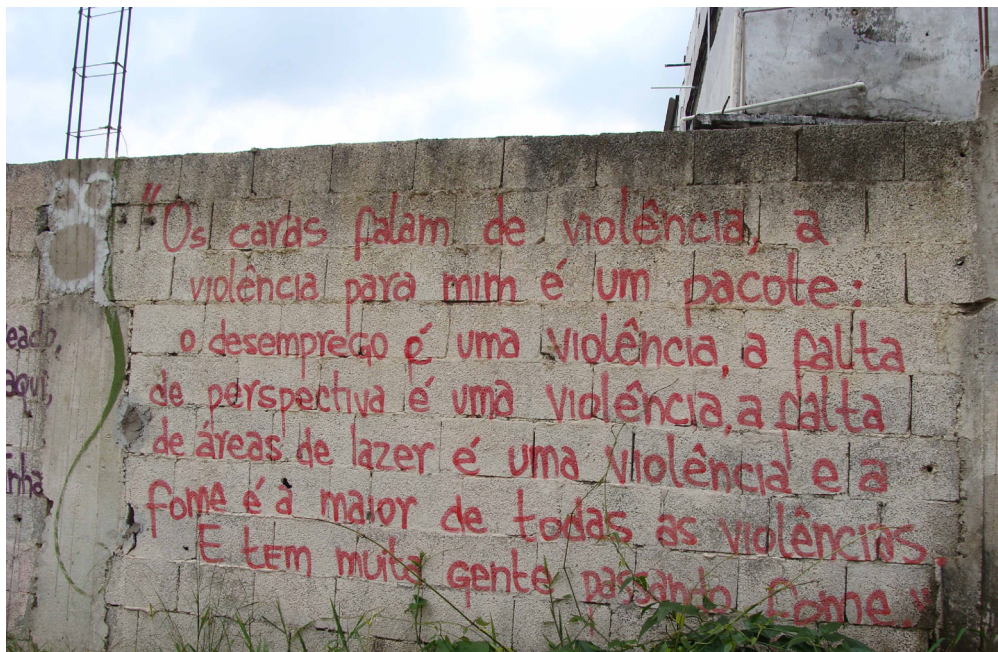 "Os caras falam de violência, a
violência para mim é um pacote:
o desemprego é uma violência, a falta
de perspectiva é uma violência, a falta
de áreas de lazer é uma violência e a
fome é a maior de todas as violências.
E tem muita gente passando fome."
eado,
aqui,
inha